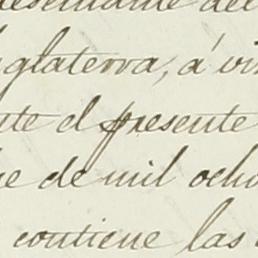 del
glaterra, á
el presente
de mil ocho
contiene las